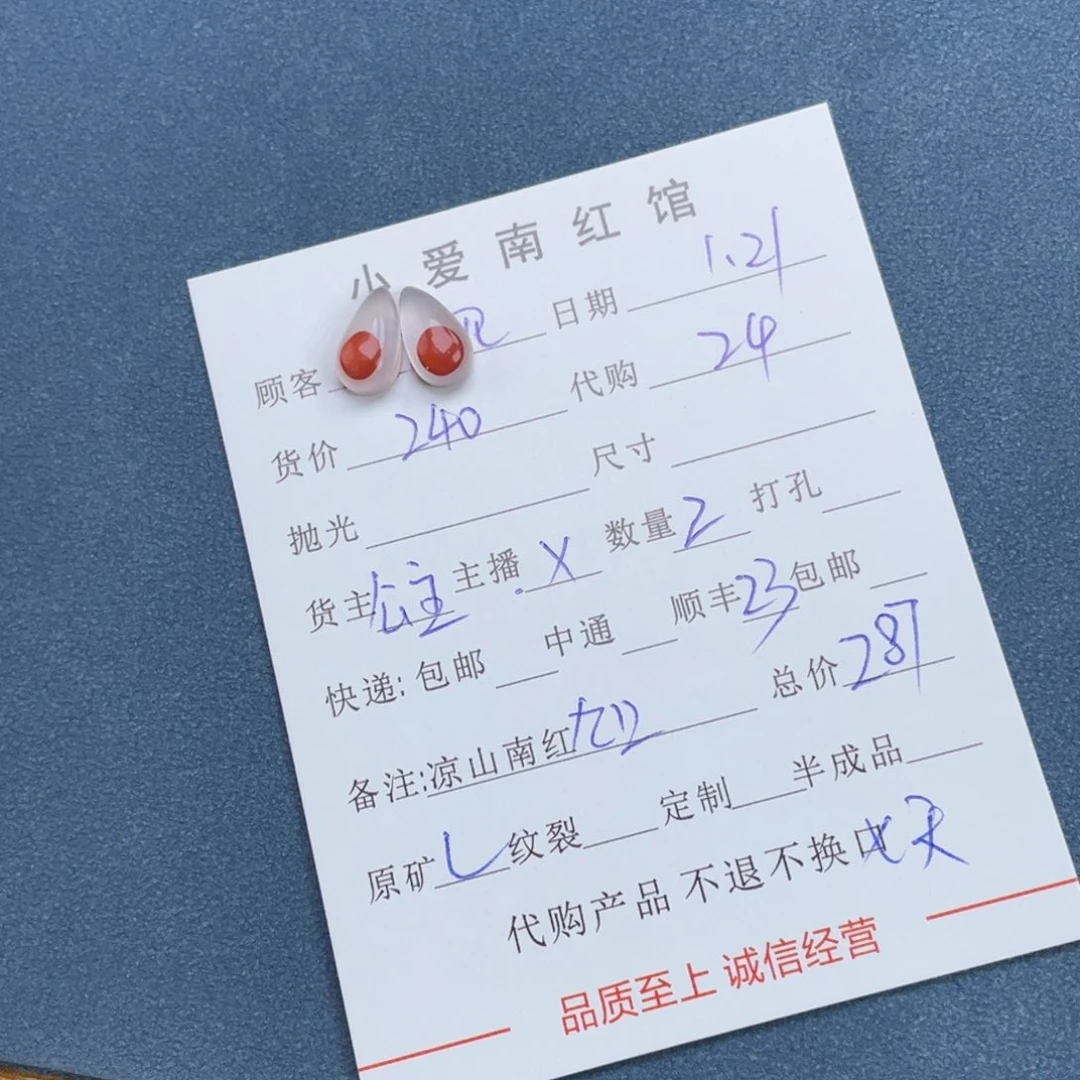 小爱南红馆
顾客 日期 1.21
货价 240 代购 24
抛光 尺寸
货主 公主 主播 X 数量 2 打孔
快递: 包邮 中通 顺丰 23 包邮
备注: 凉山南红 九口 总价 287
原矿 纹裂 定制 半成品
代购产品 不退不换口 七天
品质至上 诚信经营